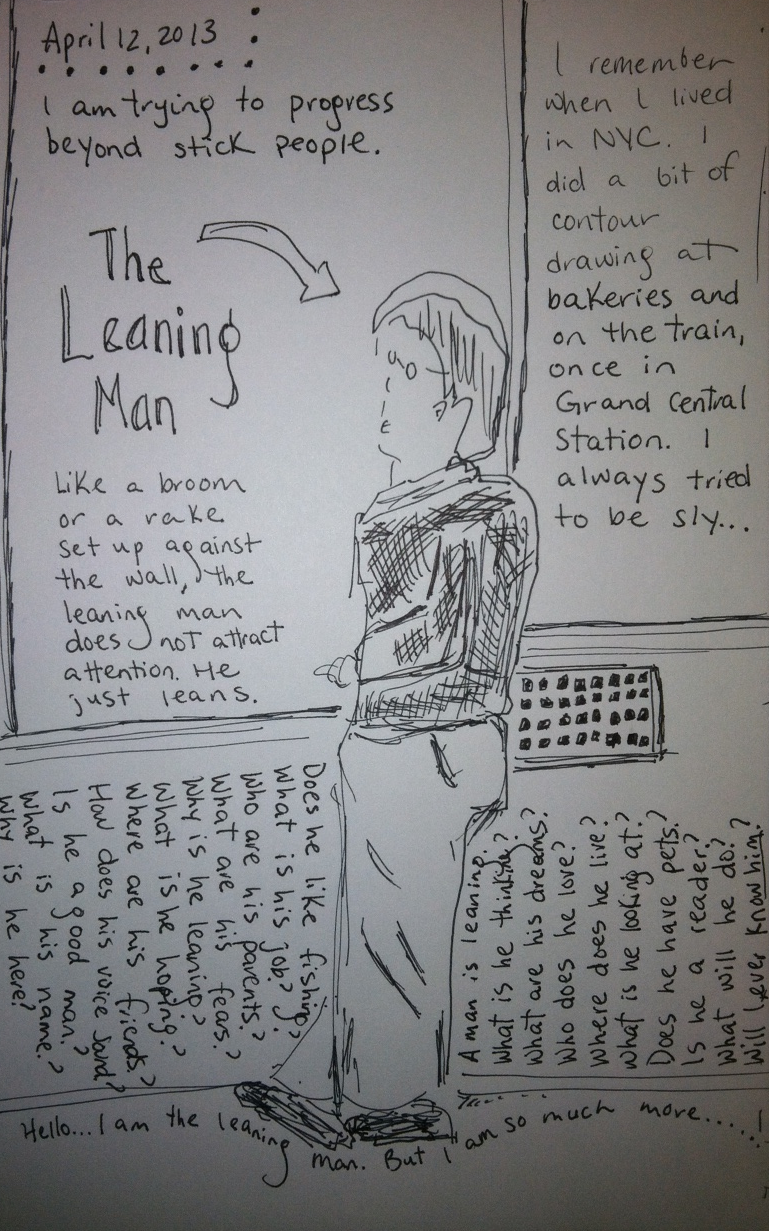 April 12, 2013
I am trying to progress
beyond stick people.
The
Leaning
Man
Like a broom
or a rake
set up against
the wall, the
leaning man
does not attract
attention. He
just leans.
I remember
when I lived
in NYC. I
did a bit of
contour
drawing at
bakeries and
on the train,
once in
Grand Central
Station. I
always tried
to be sly...
Does he like fishing?
What is his job?
Who are his parents?
What are his fears?
Why is he leaning?
What is he hoping?
Where are his friends?
How does his voice sound?
Is he a good man?
What is his name?
Why is he here?
A man is leaning.
What is he thinking?
What are his dreams?
Who does he love?
Where does he live?
What is he looking at?
Does he have pets?
Is he a reader?
What will he do?
Will I ever know him?
Hello... I am the leaning man. But I am so much more.......